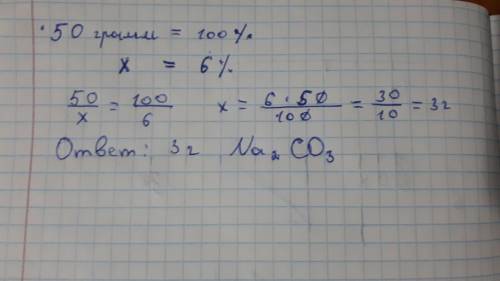 50 грамм = 100%.
x = 6%.
50/x = 100/6 x = 6·50/100 = 30/10 = 3г
Ответ: 3г Na₂CO₃